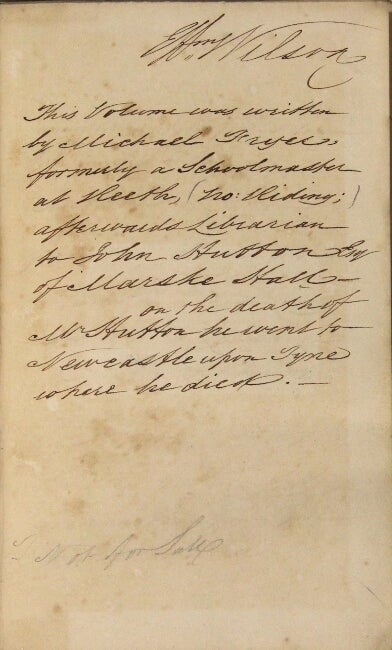 Wilson
This Volume was written
by Michael Fryer,
formerly a Schoolmaster
at Reeth, (No: Riding;)
afterwards Librarian
to John Hutton Esq
of Marske Hall—
on the death of
Mr Hutton he went to
Newcastle upon Tyne
where he died. —
Not for Sale